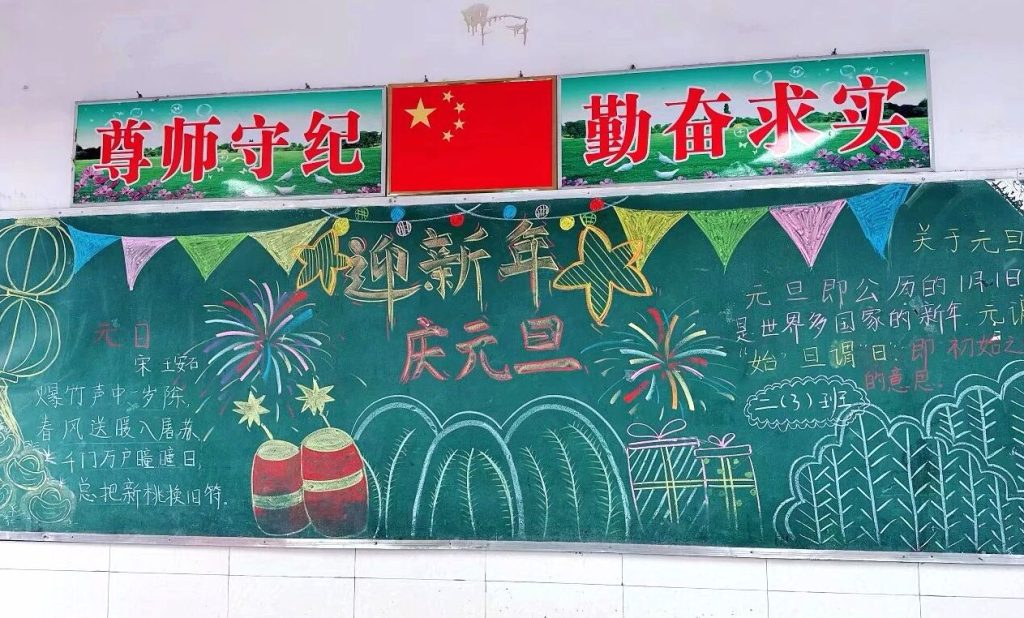 尊师守纪
勤奋求实
迎新年
庆元旦
元日
宋 王安石
爆竹声中一岁陈
春风送暖入屠苏
千门万户曈曈日,
总把新桃换旧符.
关于元旦
元旦即公历的1月1日
是世界多国家的新年.元谓
"始"旦谓"日".即初始之
的意思.
二(3)班